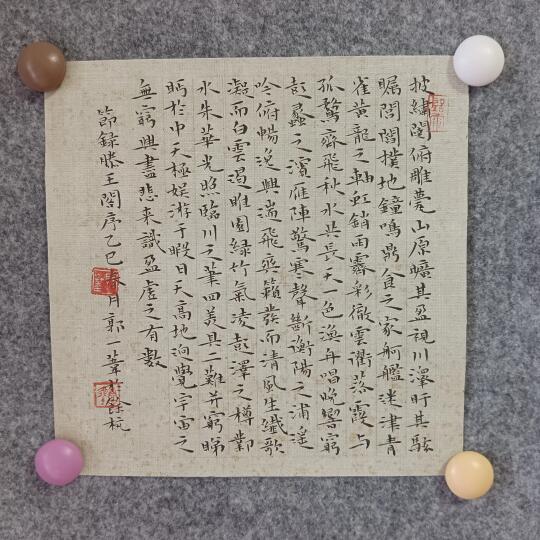 披繡闥俯雕甍山原曠其盈視川澤盱其駭
矚閭閻撲地鐘鳴鼎食之家舸艦迷津青
雀黃龍之軸虹銷雨霽彩徹雲衢落霞与
孤鶩齊飛秋水共長天一色漁舟唱晚響窮
彭蠡之濱雁陣驚寒聲斷衡陽之浦遥
吟俯暢逸興遄飛爽籟發而清風生纖歌
凝而白雲遏睢園緑竹氣凌彭澤之樽鄴
水朱華光照臨川之筆四美具二難并窮睇
眄於中天極娱游于暇日天高地迥覺宇宙之
無窮興盡悲来識盈虚之有數
節録滕王閣序乙巳春月郭一葦於餘杭